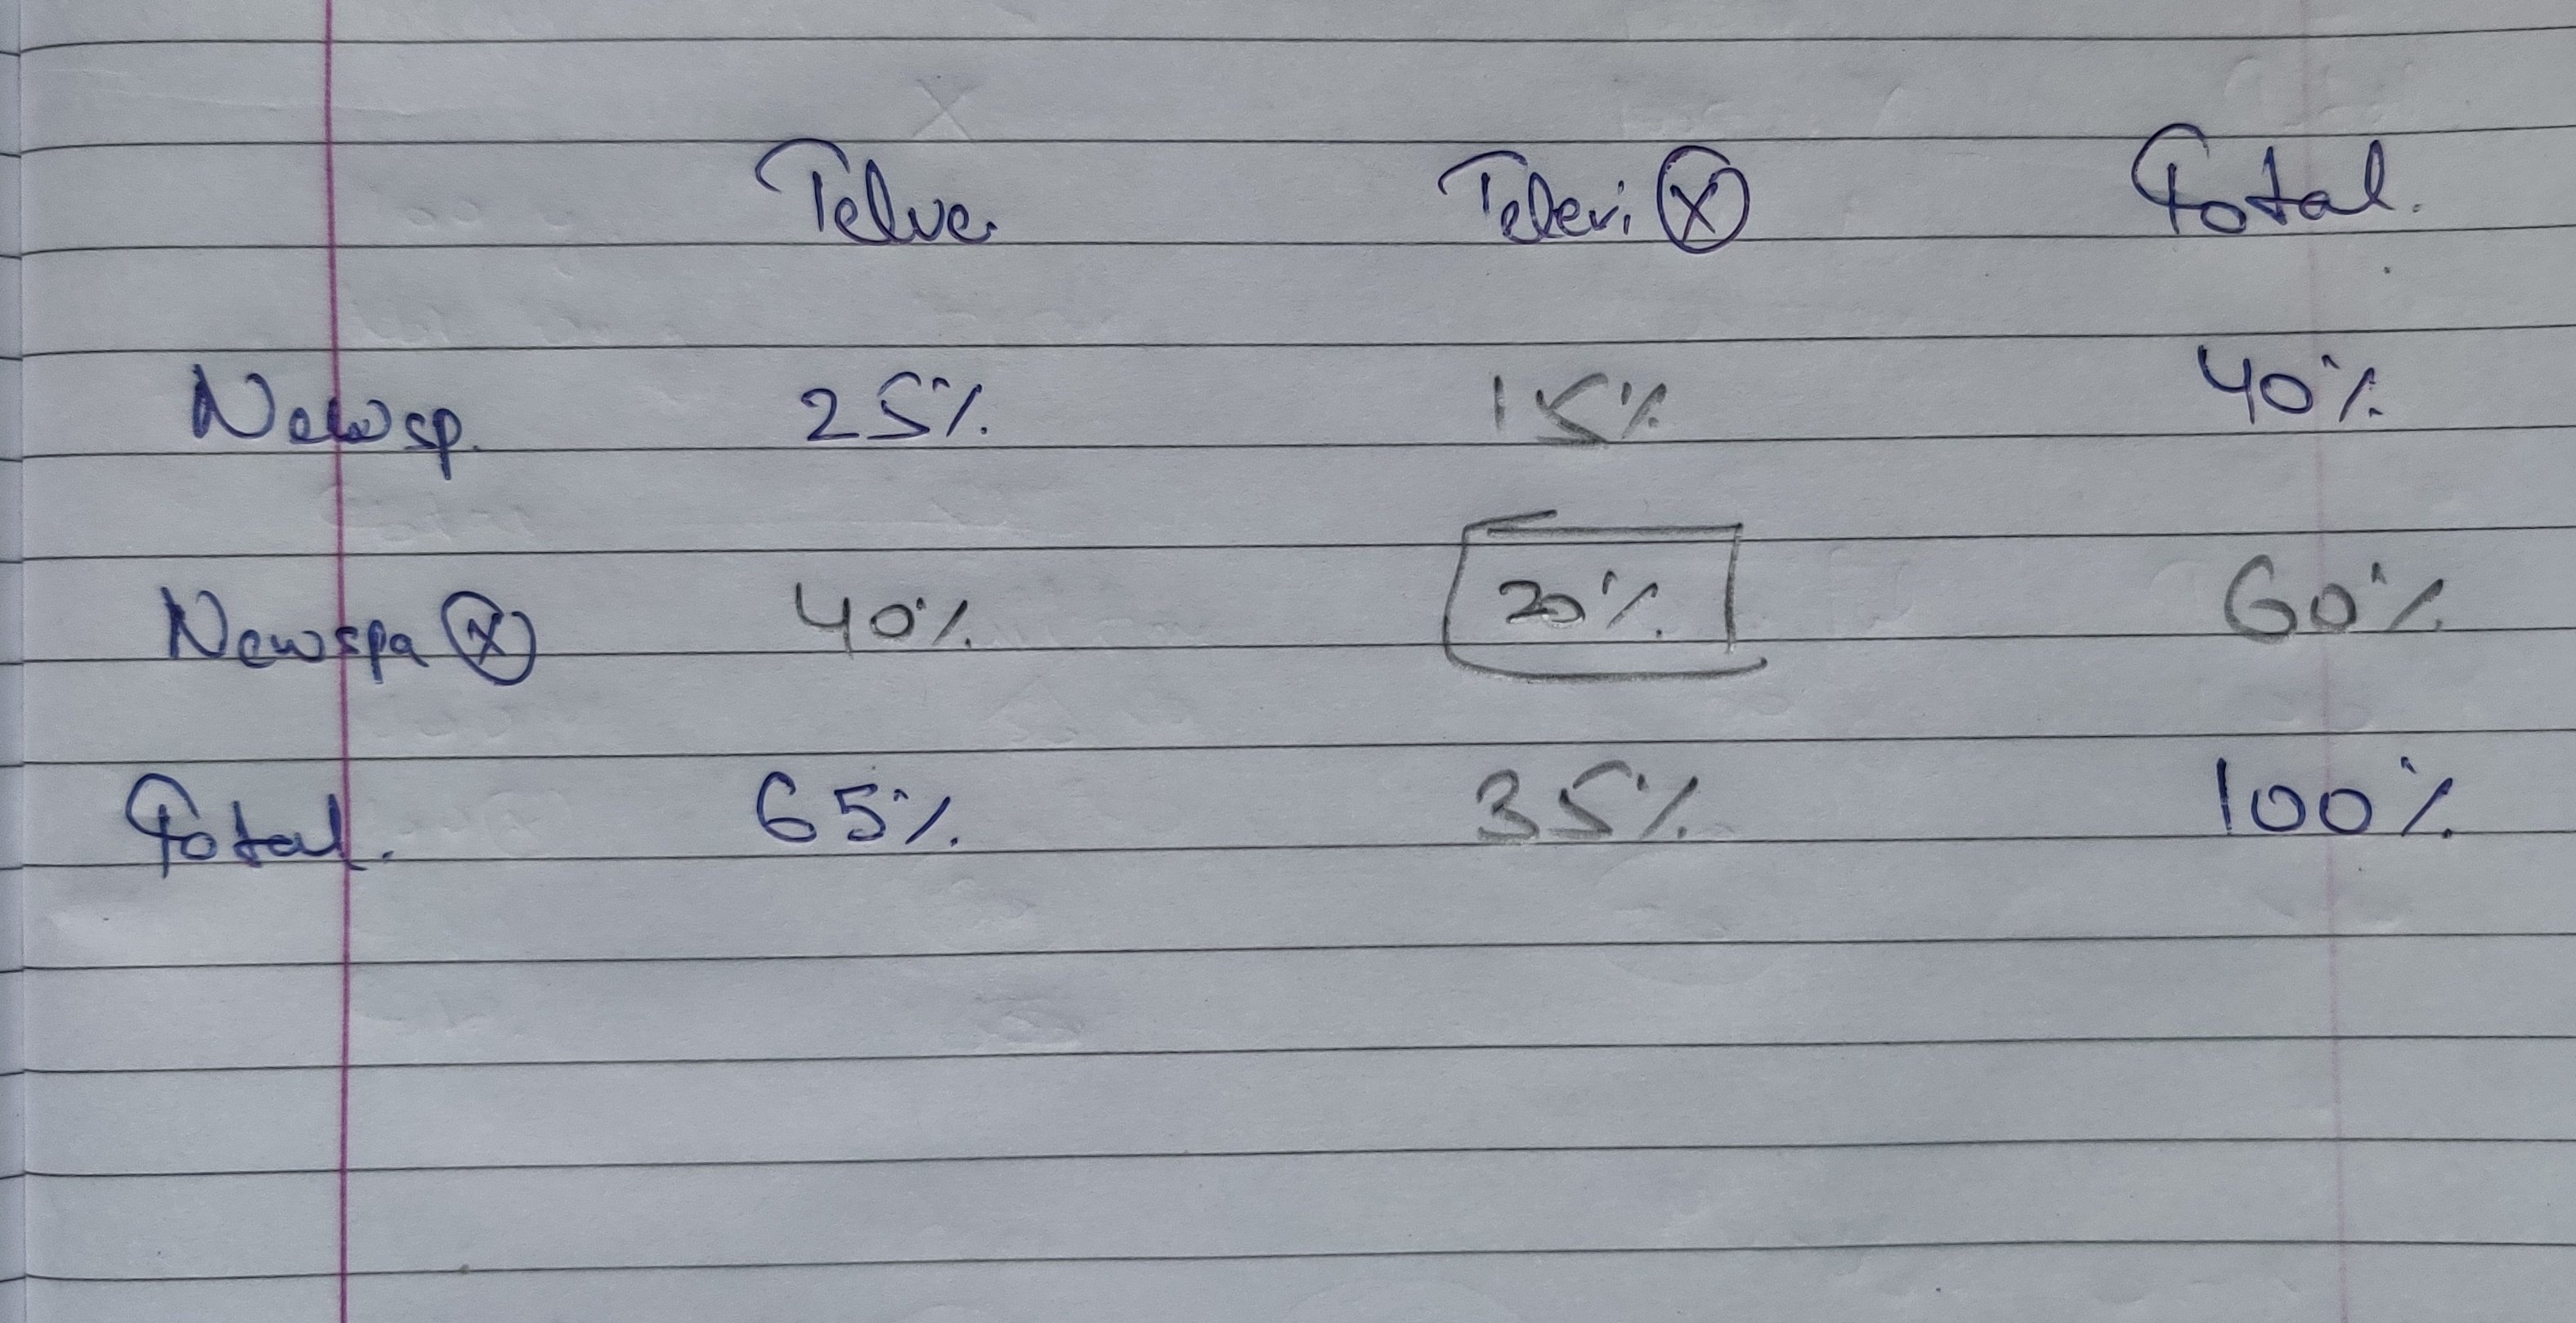 Telve. Televi Ⓧ Total.
Newsp. 25% 15% 40%
Newspa Ⓧ 40% 20% 60%
Total. 65% 35% 100%